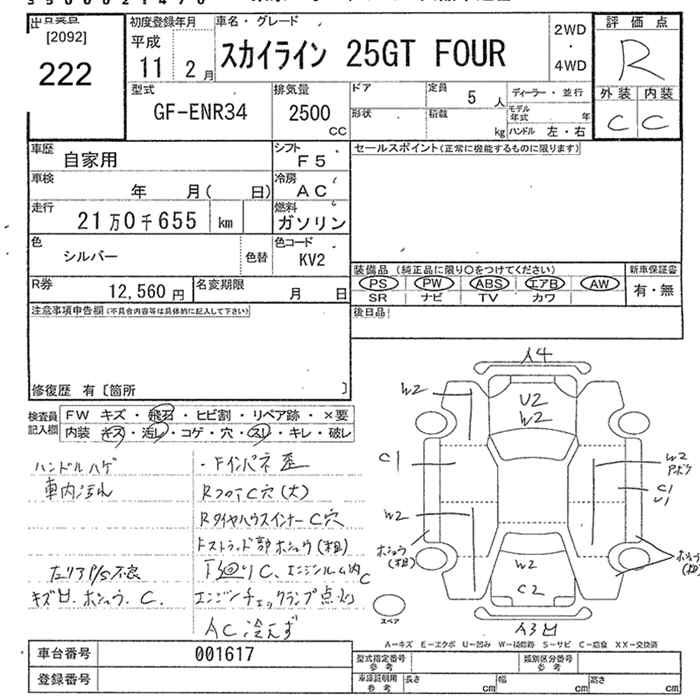 [2092]
222
初度登録年月
平成
11 2月
車名・グレード
スカイライン 25GT FOUR
2WD
・
4WD
評価点
R
外装 内装
C C
型式
GF-ENR34
排気量
2500
CC
ドア
形状
定員
5人
積載
kg
ディーラー・並行
モデル年式 年
ハンドル 左・右
車歴 自家用
シフト F5
車検 年 月( 日)
冷房 AC
走行 21万0千655 km
燃料 ガソリン
色 シルバー
色替
色コード KV2
R券 12,560円
名変期限 月 日
セールスポイント(正常に機能するものに限ります)
装備品 (純正品に限り○をつけてください)
新車保証書
PS PW ABS エアB AW
有・無
SR ナビ TV カワ
後日品
注意事項申告欄(不具合内容等は具体的に記入して下さい)
修復歴 有[箇所 ]
検査員記入欄
FW キズ・飛石・ヒビ割・リペア跡・×要
内装 キズ・汚レ・コゲ・穴・スレ・キレ・破レ
ハンドルハゲ
車内汚れ
左リアP/S不良
キズ凹. ホシュウ. C.
・Fインパネ歪
RフロアC穴(大)
RタイヤハウスインナーC穴
Fストラット部ホシュウ(粗)
下回りC、エンジンルーム内C
エンジンチェックランプ点灯
AC冷えず
A4
W2
U2
W2
C1
W2
C1
U1
W2
ホシュウ(粗)
W2
C2
A3凹
スペア
A-キズ E-エクボ U-凹み W-補修跡 S-サビ C-腐食 XX-交換済
車台番号 001617
登録番号
型式指定番号
参考
類別区分番号
参考
車庫証明用
参考
長さ cm
幅 cm
高さ cm